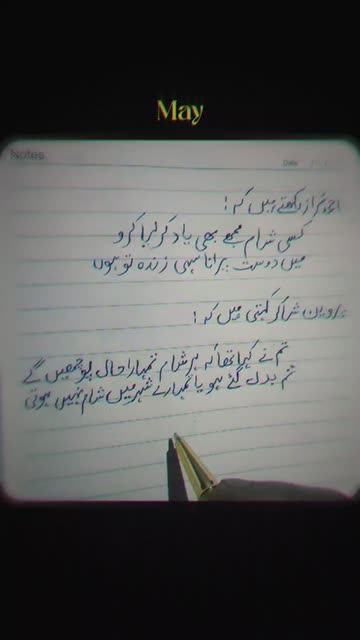 May
Notes
Date
احمد فراز لکھتے ہیں کہ!
کسی شام مجھے بھی یاد کر لیا کرو
میں دوست پرانا سہی زندہ تو ہوں
پروین شاکر کہتی ہیں کہ!
تم نے کہا تھا کہ ہر شام تمہارا حال پوچھیں گے
تم بدل گئے ہو یا تمہارے شہر میں شام نہیں ہوتی